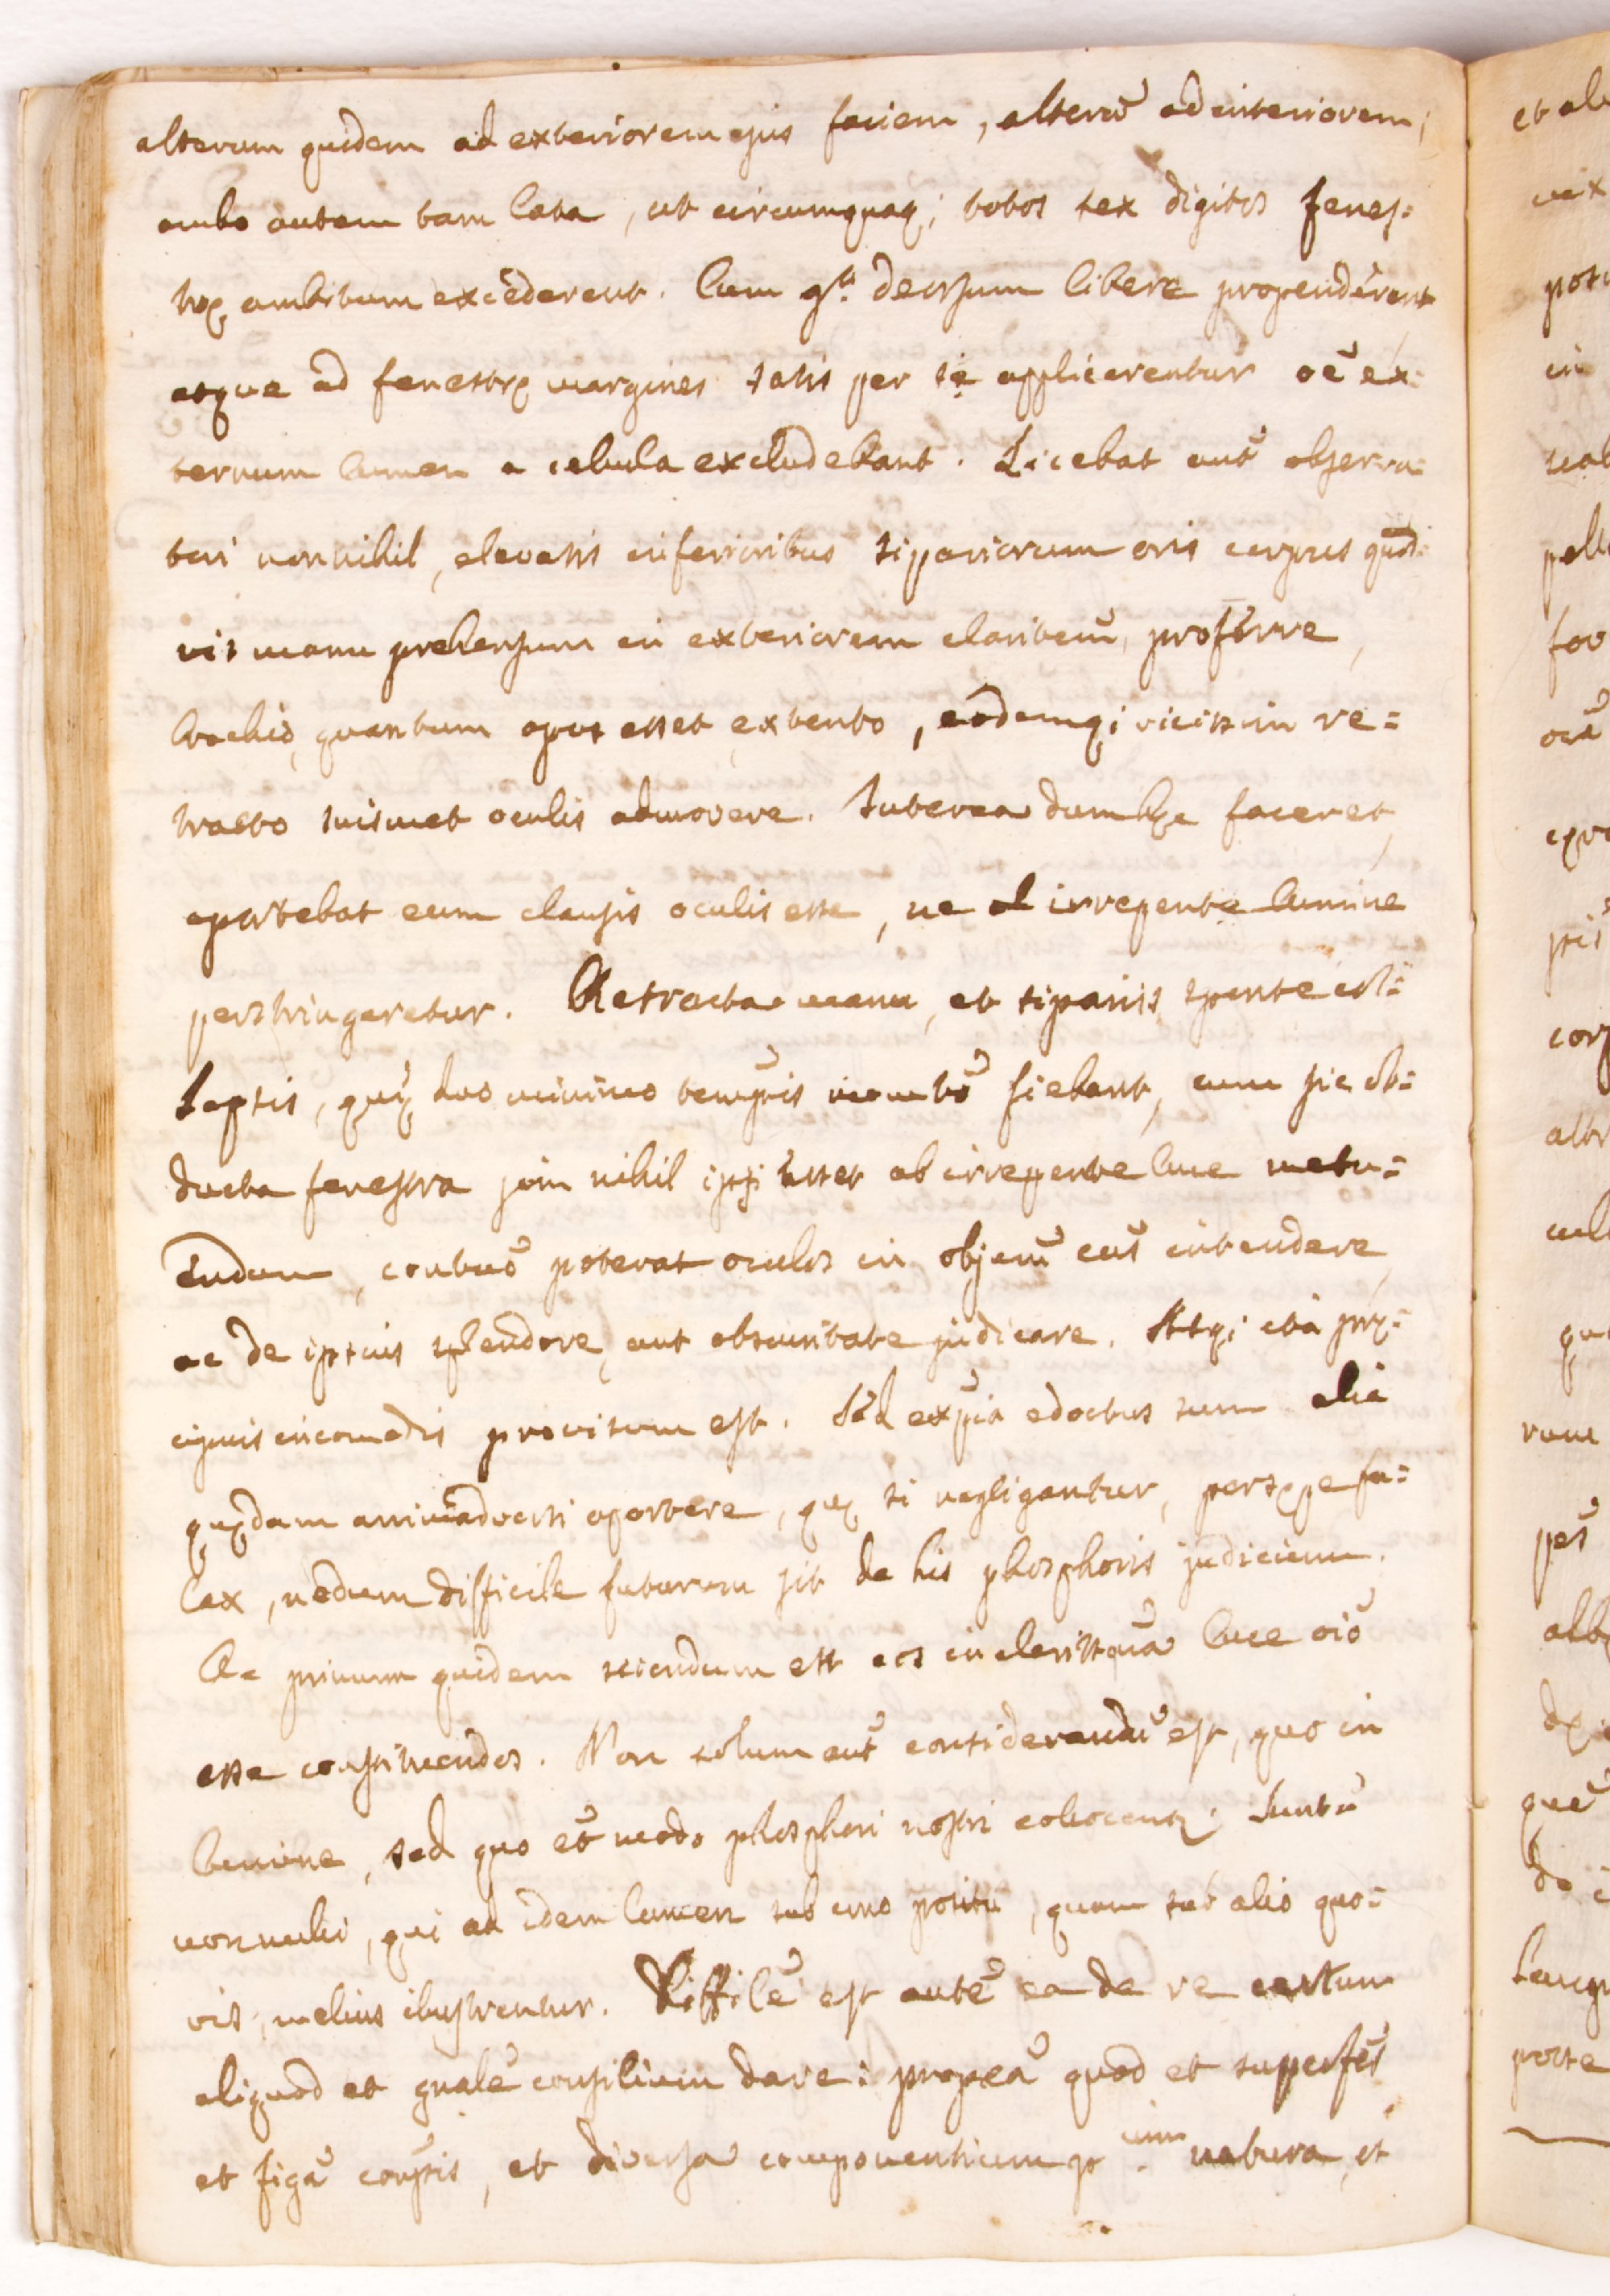 alterum quidem ad exteriorem ejus faciem, alterũ ad interiorem;
ambo autem tam lata, ut circumquaq; totos sex digitos fenes=
trę ambitum excederent. Cum deorsum libere propenderent
atque ad fenestrę margines satis per se applicarentur oẽ ex=
ternum lumen a celula excludebant. Licebat aut̃ observa=
tori nonnihil, elevatis inferioribus sipariorum oris corpus quod=
vis manu prehensum in exteriorem claritatem proferre,
brachio, quantum opus esset extento, eodemq; vicissim re=
tracto suismet oculis admovere. Interea dum hęc faceret,
oportebat eum clausis oculis esse, ne ab irrepente lumine
perstringeretur. Retracta manu, et sipariis sponte col=
lapsis, quę duo minimo temp̃ris momẽto fiebant, cum sic ob=
ducta fenestra jam nihil ipsi esset ab irrepente luce metu=
endum, contuõ poterat oculos in objcũ eũs intendere,
ac de ipsius splendore, aut obscuritate judicare. Atq; ita prę=
cipuis incomodis provisum est. Sed exp̃ia edoctus sum alia
quędam animadverti oportere, quę si negligantur, persępe fa=
lax, nedum difficile futurum sit de his phosphoris judicium.
Ac primum quidem sciendum est eos in clarissima luce oiõ
esse constituendos. Non solum aut̃ considerandũ est, quo in
lumine, sed quo et̃ modo phosphori nostri collocentr. Sunt ẽ
nonnulli, qui ad idem lumen sub uno positu, quam sub alio quo=
vis, melius illustrentur. Difficilẽ est autẽ ea de re certum
aliquod et gnalẽ consilium dare: propeã quod et superfẽs
et figã corp̃ris, et diversa componentium natura, et